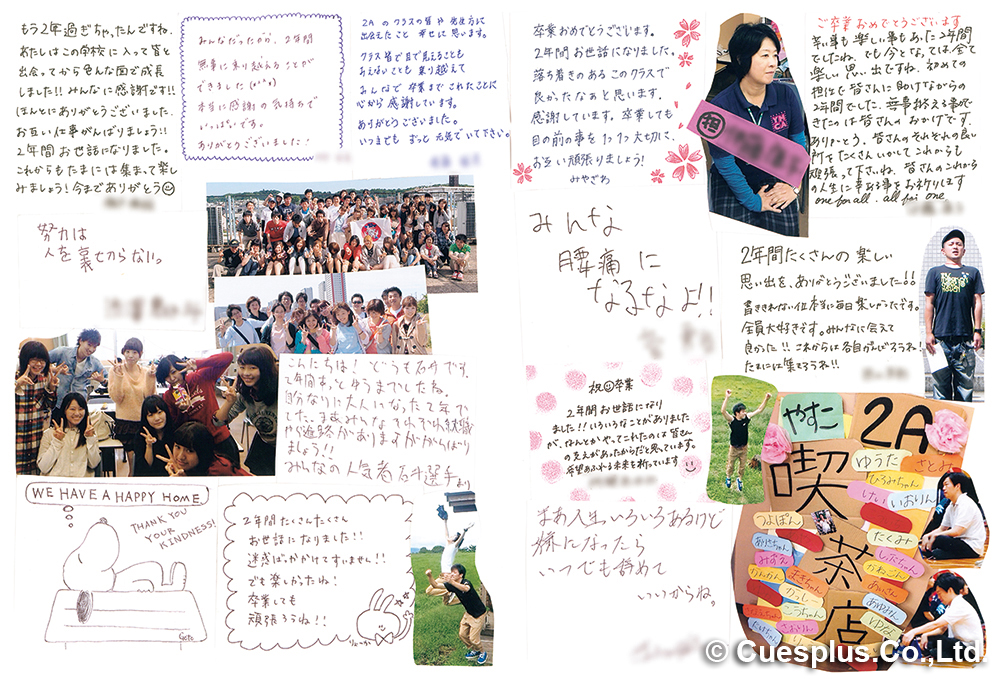 もう2年過ぎちゃったんですね。
あたしはこの学校に入って皆と
出会ってから色んな面で成長
しました!!みんなに感謝です!!
ほんとにありがとうございました。
お互い仕事がんばりましょう!!
2年間お世話になりました。
これからもたまには集まって楽し
みましょう!今までありがとう
みんなだったから、2年間
無事に乗り越えることが
できました(^o^)
本当に感謝の気持ちで
いっぱいです。
ありがとうございました!
2Aのクラスの皆や先生方に
出会えたこと 幸せに思います。
クラス皆で目で見えることも
みえないことも乗り越えて
みんなで卒業までこれたことに
心から感謝しています。
ありがとうございました。
いつまでも ずっと 元気で いて下さい。
努力は
人を裏切らないっ
こんにちは!どうも石井です。
2年間あっとゆうまでしたね。
みんなの人気者石井選手より
WE HAVE A HAPPY HOME
THANK YOU
YOUR
KINDNESS!
Goto
2年間たくさんたくさん
お世話になりました!!
迷惑ばっかかけてすいません!!
でも楽しかったね!
卒業しても
頑張ろうね!!
卒業おめでとうございます。
2年間お世話になりました。
落ち着きのあるこのクラスで
良かったなぁと思います。
感謝しています。卒業しても
目の前の事を1つ1つ大切に、
お互い頑張りましょう!
みやざわ
担
YMCA
ご卒業おめでとうございます
苦い事も楽しい事もあった2年間
でしたね。でも今となっては全て
楽しい思い出ですね。初めての
担任で皆さんに助けながらの
2年間でした。無事終える事が
できたのは皆さんのおかげです。
ありがとう。皆さんのそれぞれの良い
所をたくさんいかしてこれからも
頑張って下さいね。皆さんのこれから
の人生に幸ある事をお祈りします
one for all. all for one
みんな
腰痛に
なるなよ!!
2年間たくさんの楽しい
思い出を、ありがとうございました!!
書ききれない位本当に毎日楽しかったです。
全員大好きです。みんなに会えて
良かった!!これからは各自がんばろうね!
たまには集まろうね!!
祝 卒業
2年間お世話になり
ました!!いろいろなことがありました
が、なんとかやってこれたのは皆さん
の支えがあったからだと思っています。
希望あふれる未来を祈っています
まあ人生いろいろあるけど
嫌になったら
いつでも辞めて
いいからね。
やすこ
2A
喫茶店
ゆうた
さとみ
ひろみちゃん
けい
いおりん
つよぽん
たくみ
かねこん
あいさん
あゆみん
ゆな
© Cuesplus.Co.,Ltd.